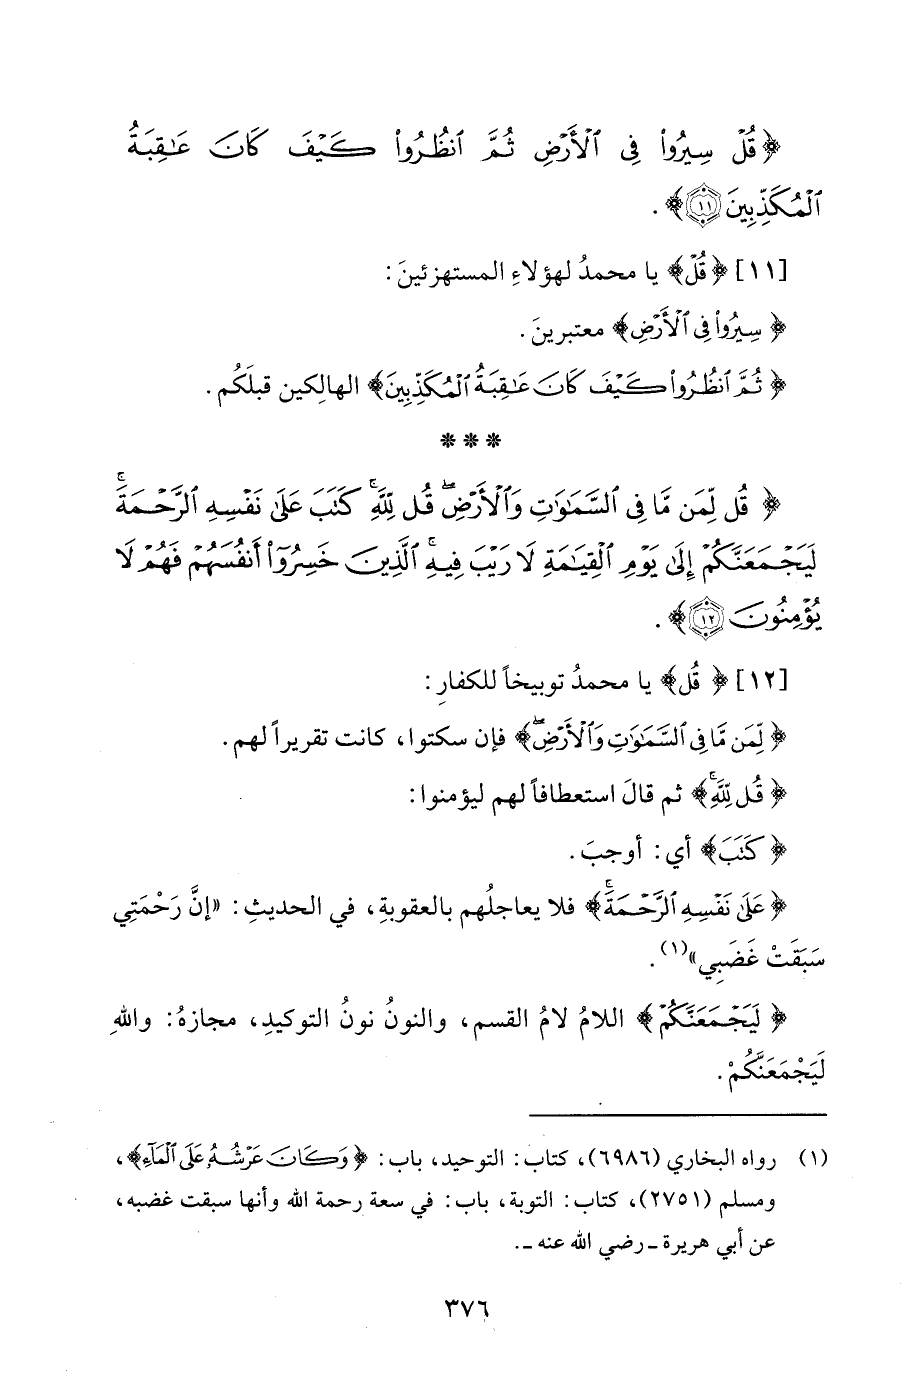 ﴿قُلْ سِيرُوا۟ فِى ٱلْأَرْضِ ثُمَّ ٱنظُرُوا۟ كَيْفَ كَانَ عَـٰقِبَةُ
ٱلْمُكَذِّبِينَ ١١﴾ .
[١١] ﴿قُلْ﴾ يا محمدُ لهؤلاءِ المستهزئينَ :
﴿سِيرُوا۟ فِى ٱلْأَرْضِ﴾ معتبرينَ .
﴿ثُمَّ ٱنظُرُوا۟ كَيْفَ كَانَ عَـٰقِبَةُ ٱلْمُكَذِّبِينَ﴾ الهالِكين قبلَكُم .
***
﴿قُل لِّمَن مَّا فِى ٱلسَّمَـٰوَٰتِ وَٱلْأَرْضِ ۖ قُل لِّلَّهِ ۚ كَتَبَ عَلَىٰ نَفْسِهِ ٱلرَّحْمَةَ ۚ
لَيَجْمَعَنَّكُمْ إِلَىٰ يَوْمِ ٱلْقِيَـٰمَةِ لَا رَيْبَ فِيهِ ۚ ٱلَّذِينَ خَسِرُوٓا۟ أَنفُسَهُمْ فَهُمْ لَا
يُؤْمِنُونَ ١٢﴾ .
[١٢] ﴿قُل﴾ يا محمدُ توبيخاً للكفارِ :
﴿لِّمَن مَّا فِى ٱلسَّمَـٰوَٰتِ وَٱلْأَرْضِ ۖ﴾ فإن سكتوا، كانت تقريراً لهم .
﴿قُل لِّلَّهِ ۚ﴾ ثم قالَ استعطافاً لهم ليؤمنوا :
﴿كَتَبَ﴾ أي : أوجبَ .
﴿عَلَىٰ نَفْسِهِ ٱلرَّحْمَةَ ۚ﴾ فلا يعاجلُهم بالعقوبةِ، في الحديثِ : «إنَّ رَحْمَتِي
سَبَقَتْ غَضَبِي»(١) .
﴿لَيَجْمَعَنَّكُمْ﴾ اللامُ لامُ القسم، والنونُ نونُ التوكيدِ، مجازهُ : واللهِ
لَيَجْمَعَنَّكُمْ .
(١) رواه البخاري (٦٩٨٦)، كتاب : التوحيد، باب : ﴿وَكَانَ عَرْشُهُۥ عَلَى ٱلْمَآءِ﴾،
ومسلم (٢٧٥١)، كتاب : التوبة، باب : في سعة رحمة الله وأنها سبقت غضبه،
عن أبي هريرة ـ رضي الله عنه ـ .
٣٧٦